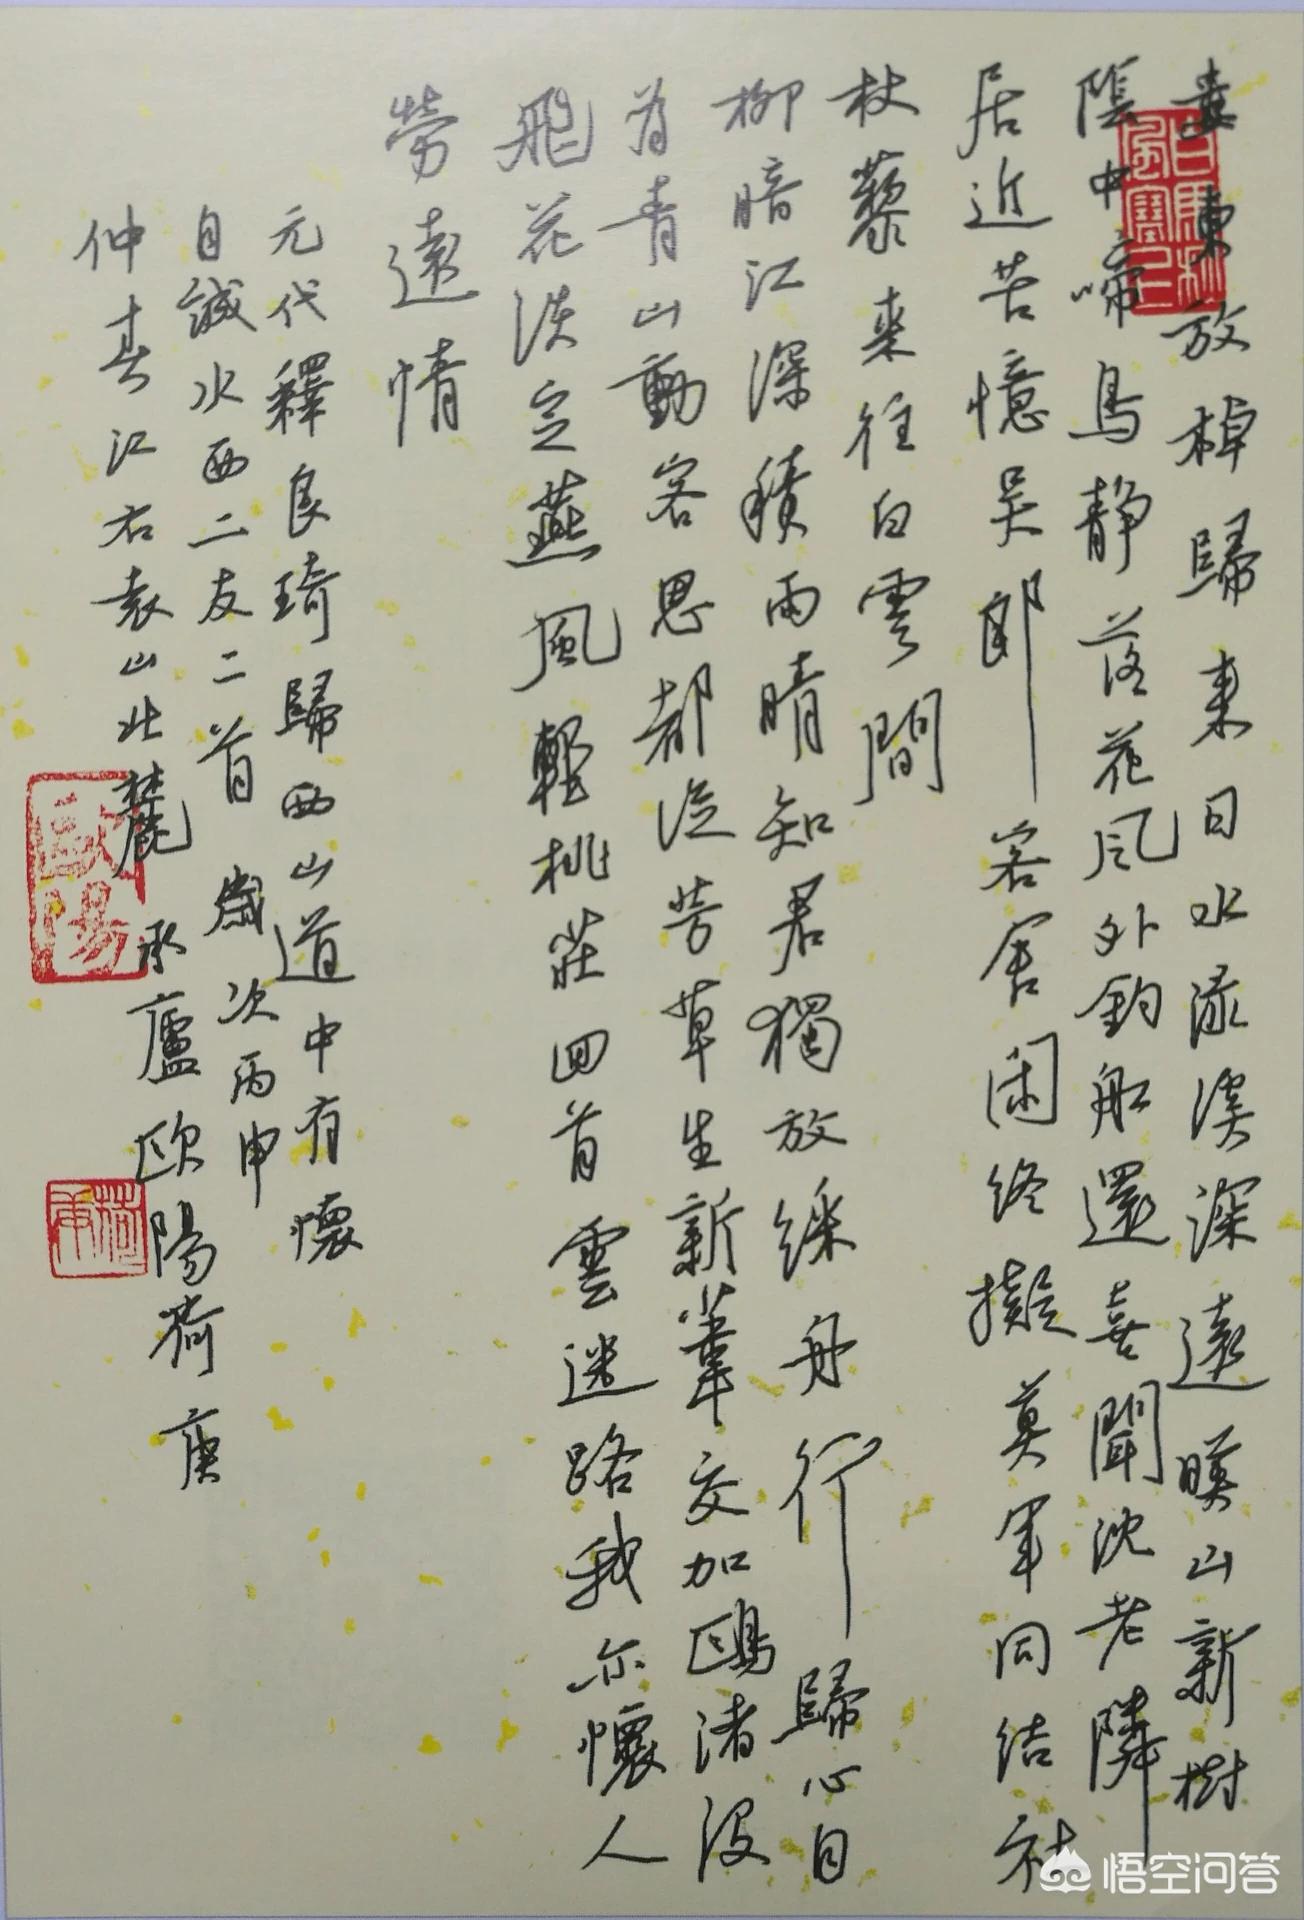 婁東放棹歸来日水渌溪深遠暎山新樹
陰中啼鳥静落花风外釣船還喜聞沈老隣
居近苦憶吴郎客舍闲終擬莫軍同结社
杖藜来往白雲間
柳暗江深積雨晴知君獨放綵舟行歸心日
為青山動客思都従芳草生新葦交加鷗渚没
飛花淡定燕風輕桃莊回首雲迷路我亦懷人
勞遠情
元代釋良琦歸西山道中有懷
自誠水西二友二首 歲次丙申
仲春江右袁山北麓 承廬欧陽荷庚
歐陽
荷庚
悟空问答